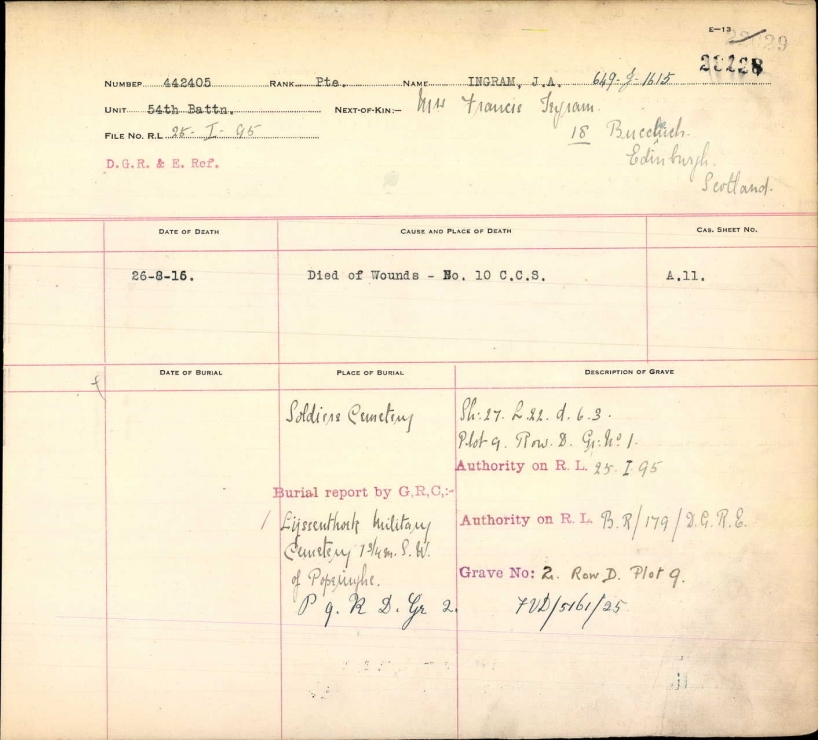 E-13
23228
NUMBER 442405 RANK Pte. NAME INGRAM, J.A. 649-J-1615
UNIT 54th Battn. NEXT-OF-KIN:- Mrs Francis Ingram.
18 Buccleuch.
FILE NO. R.L 25-I-95
Edinburgh.
D.G.R. & E. Ref.
Scotland.
DATE OF DEATH CAUSE AND PLACE OF DEATH CAS. SHEET NO.
26-8-16. Died of Wounds - No. 10 C.C.S. A.11.
DATE OF BURIAL PLACE OF BURIAL DESCRIPTION OF GRAVE
Soldiers Cemetery Sh: 27. L. 22. d. 6.3.
Plot 9. Row. D. Gr: No 1.
Authority on R. L. 25. I. 95
Burial report by G.R.C,:-
Lijssenthoek Military Authority on R. L. B.R/179/D.G.R.E.
Cemetery 1 3/4 m. S.W.
of Poperinghe. Grave No: 2. Row D. Plot 9.
P 9. R D. Gr 2. 7VD/5161/25